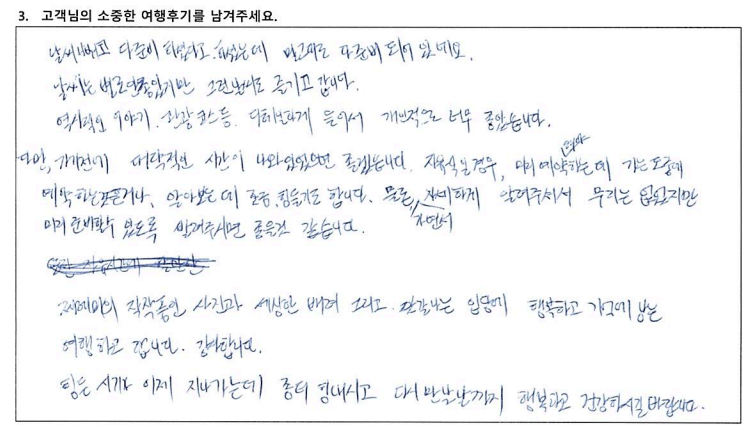 3. 고객님의 소중한 여행후기를 남겨주세요.
날씨빼고 다준비 하셨다고 하셨는데 말그대로 다준비 되어 있네요.
날씨는 별로였지만 그런날씨도 즐기고 갑니다.
역사적인 이야기. 관광코스등. 다해보게 들어서 개인적으로 너무 좋았습니다.
다만, 가기전에 대략적인 시간이 나와있었으면 좋겠습니다. 자유식일경우, 미리 예약하는데 가는도중에
예약하는것이나, 알아보는데 조금 힘들기도 합니다. 물론 자세하게 알려주셔서 무리는 없었지만
가면서
미리 준비할수 있도록 알려주시면 좋을것 같습니다.
작품인 사진과 세심한 배려 그리고 입담에 행복하고 기억에 남는
여행하고 갑니다. 감사합니다.
힘든 시기가 이제 지나가는데 좀더 힘내시고 다시 만날날까지 행복하고 건강하시길바랍니다.